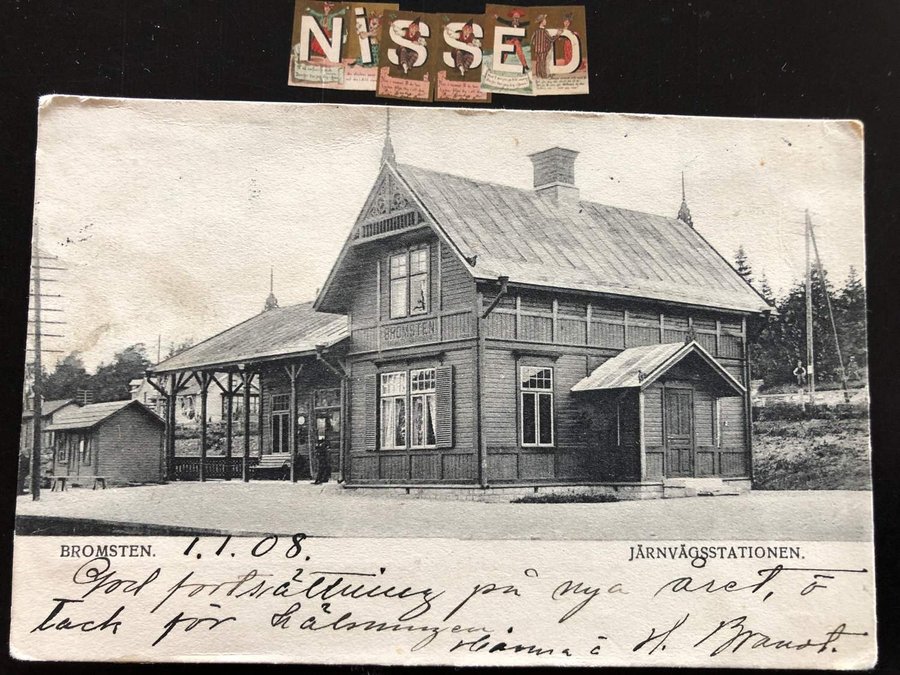 NiSSED
BROMSTEN
BROMSTEN. 1.1.08. JÄRNVÄGSSTATIONEN.
God fortsättning på nya året, o
tack för hälsningen
Hanna o H. Brandt.